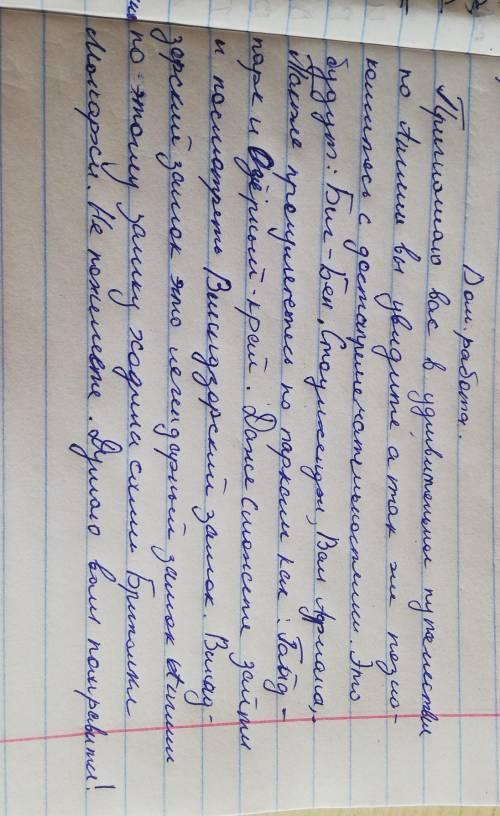 Дом. работа.
Приглошаю вас в удивительное путешествия
по Англии вы увидите а так же позно-
комитесь с достопремечательностями. Это
будут: Биг-Бен, Стоунхендж, Вал Адриана,
Также прогуляетесь по паркам как: Гайд-
парк и Озёрный-край. Даже сможете зайти
и посмотреть Виндзорский замок. Винд-
зорский замок это легендарный замок Англии
по этому замку ходили сами Британские
Монархи. Не пожалеете. Думаю вам понравится!